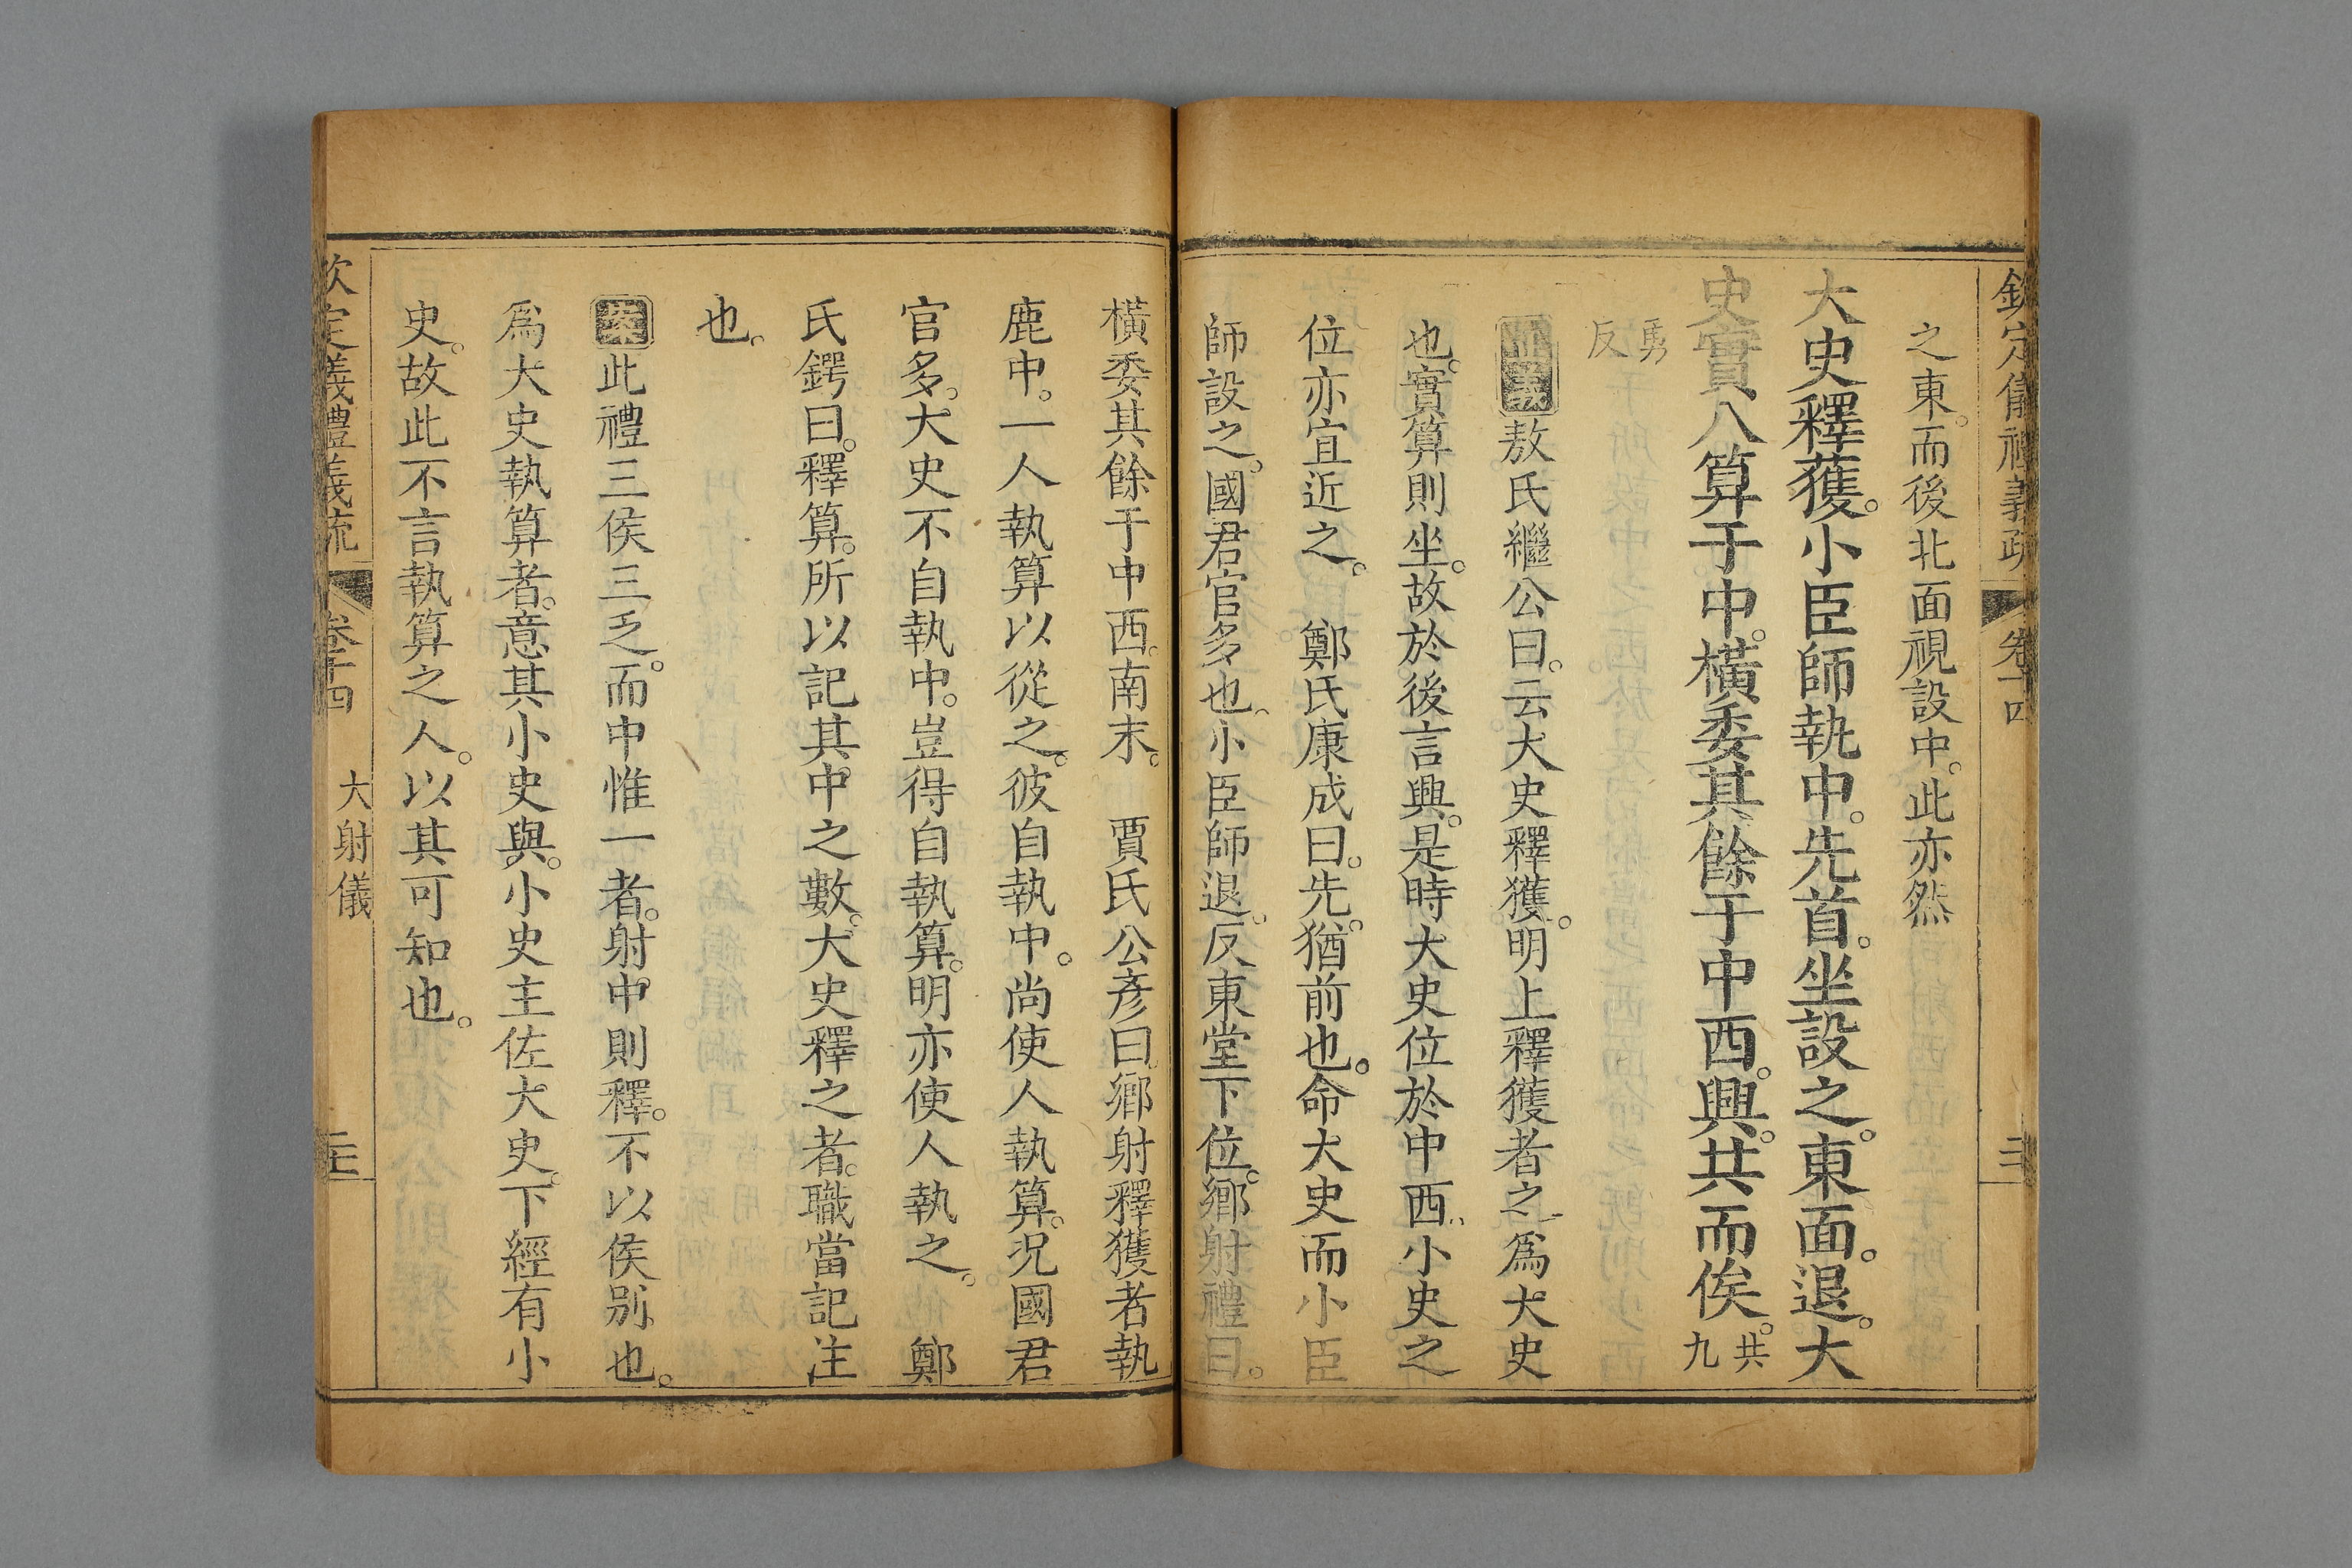 欽定儀禮義疏 卷十四
之東。而後北面視設中。此亦然
大史釋獲。小臣師執中。先首。坐設之。東面。退。大
史實八算于中。橫委其餘于中西。興。共而俟。共九
勇反
正義敖氏繼公曰。云大史釋獲。明上釋獲者之爲大史
也。實算則坐。故於後言興。是時大史位於中西。小史之
位亦宜近之。 鄭氏康成曰。先。猶前也。命大史而小臣
師設之。國君官多也。小臣師退。反東堂下位。鄉射禮曰。
橫委其餘于中西。南末。 賈氏公彥曰。鄉射釋獲者執
鹿中。一人執算以從之。彼自執中。尚使人執算。況國君
官多。大史不自執中。豈得自執算。明亦使人執之。 鄭
氏鍔曰。釋算。所以記其中之數。大史釋之者。職當記注
也。
案此禮三侯三乏。而中惟一者。射中則釋。不以侯別也。
爲大史執算者。意其小史與。小史主佐大史。下經有小
史。故此不言執算之人。以其可知也。
欽定儀禮義疏 卷十四 大射儀